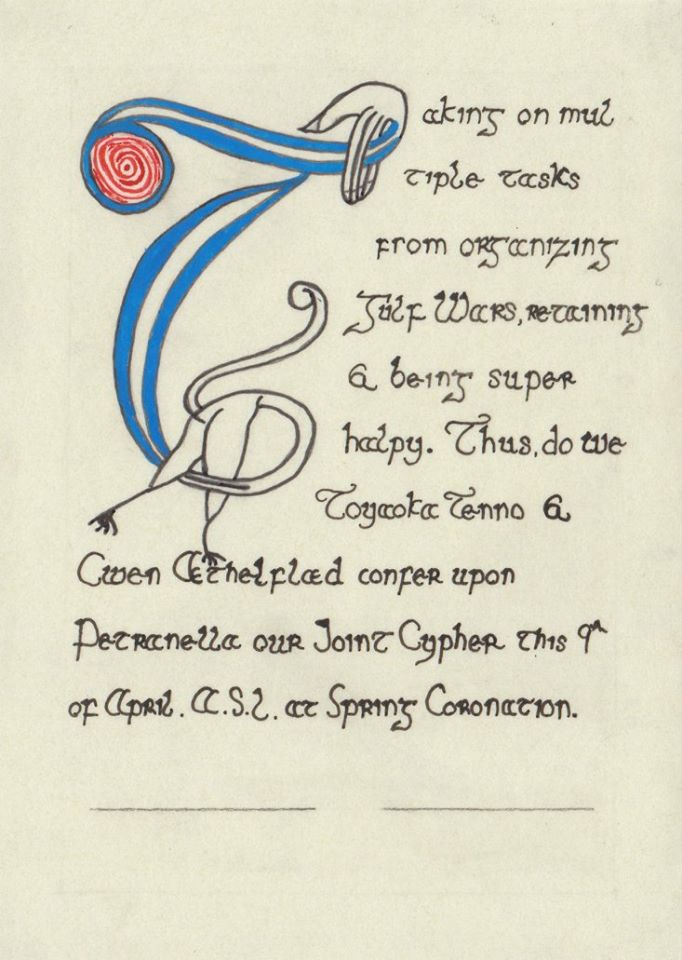 Taking on mul
tiple tasks
from organizing
Gulf Wars, retaining
& being super
halpy. Thus, do we
Toyaoka Tenno &
Cwen Æthelflæd confer upon
Petranella our Joint Cypher this 9th
of April. A.S.L. at Spring Coronation.